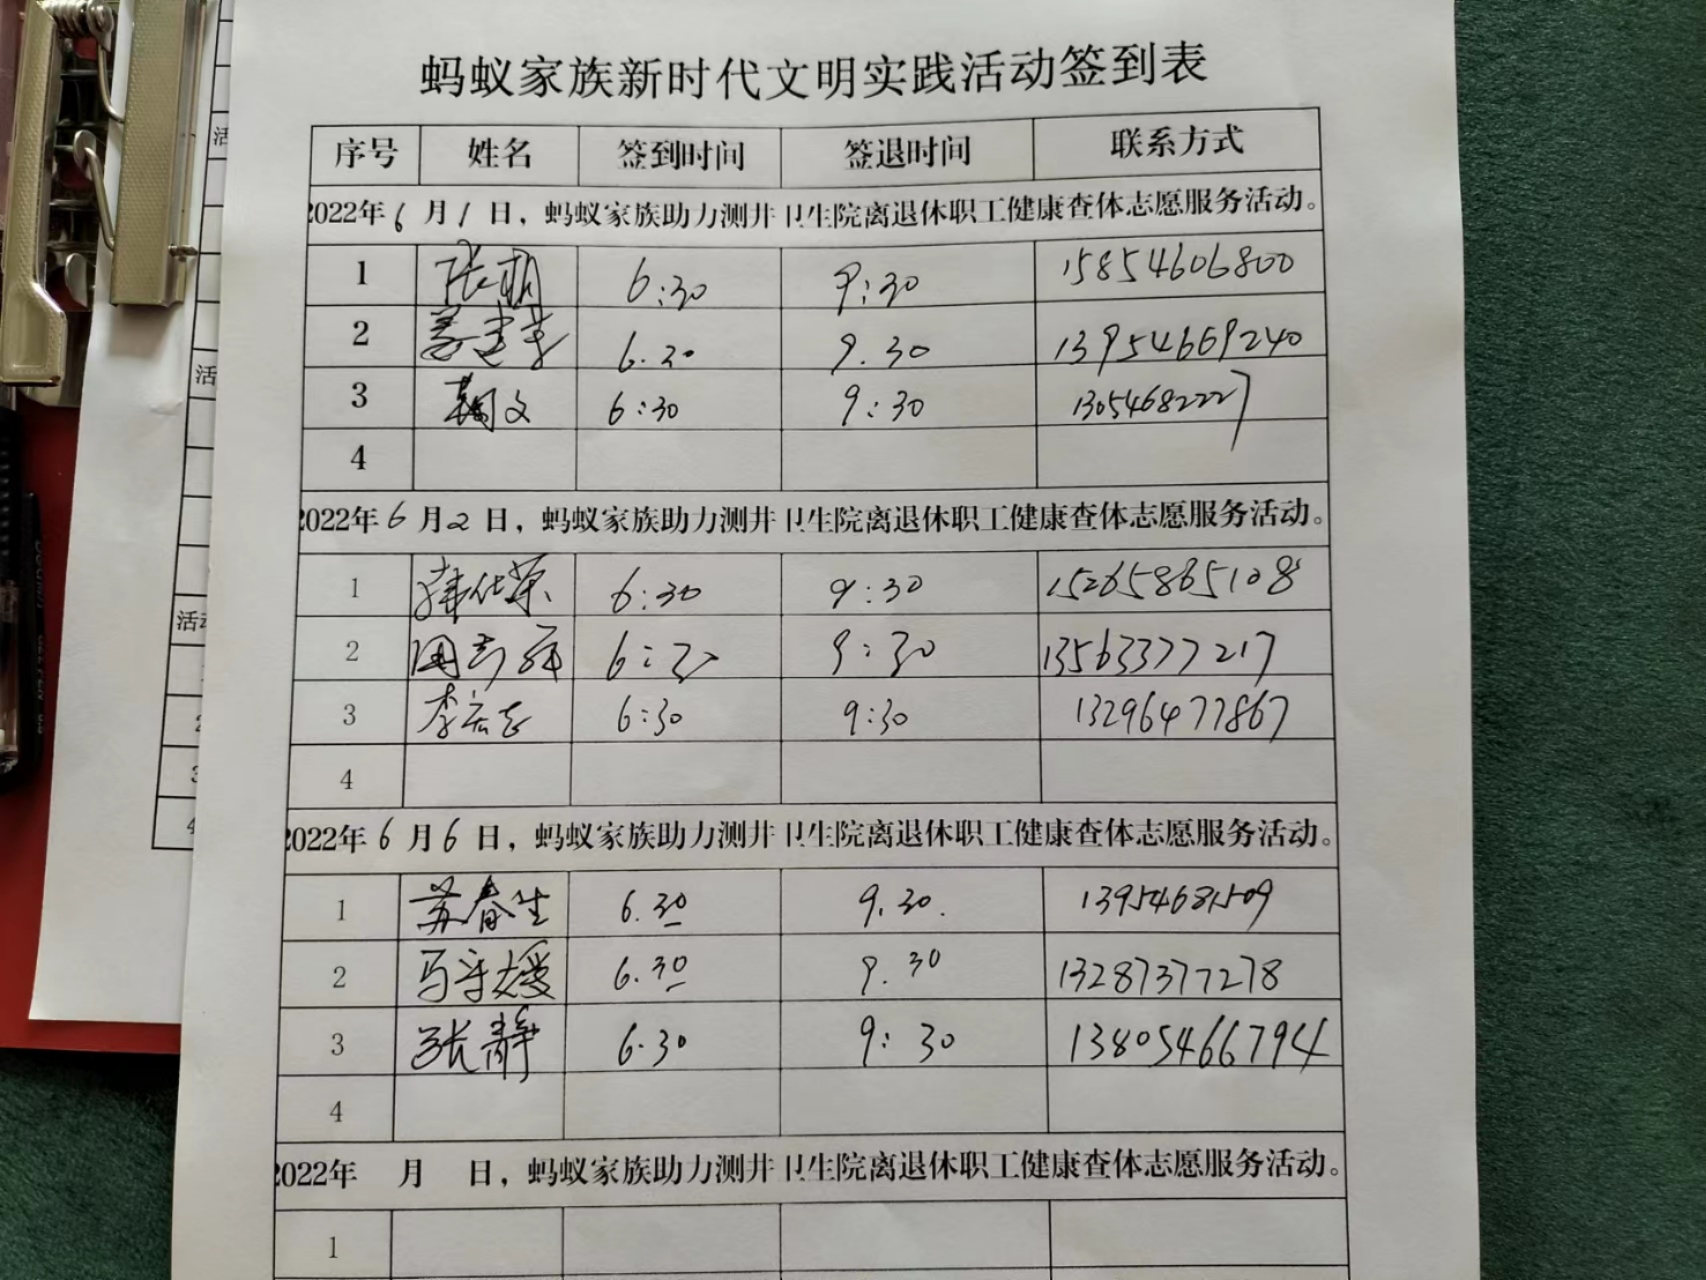 蚂蚁家族新时代文明实践活动签到表
序号 姓名 签到时间 签退时间 联系方式
2022年6月1日，蚂蚁家族助力测井卫生院离退休职工健康查体志愿服务活动。
1 6:30 9:30 15854606800
2 6.30 9.30 13954669240
3 6:30 9:30 13054682227
4
2022年6月2日，蚂蚁家族助力测井卫生院离退休职工健康查体志愿服务活动。
1 6:30 9:30 15265865108
2 6:30 9:30 13563377217
3 6:30 9:30 13296477867
4
2022年6月6日，蚂蚁家族助力测井卫生院离退休职工健康查体志愿服务活动。
1 苏春生 6.30 9.30. 13954681509
2 6.30 9.30 13287377278
3 张静 6.30 9:30 13805466794
4
2022年 月 日，蚂蚁家族助力测井卫生院离退休职工健康查体志愿服务活动。
1